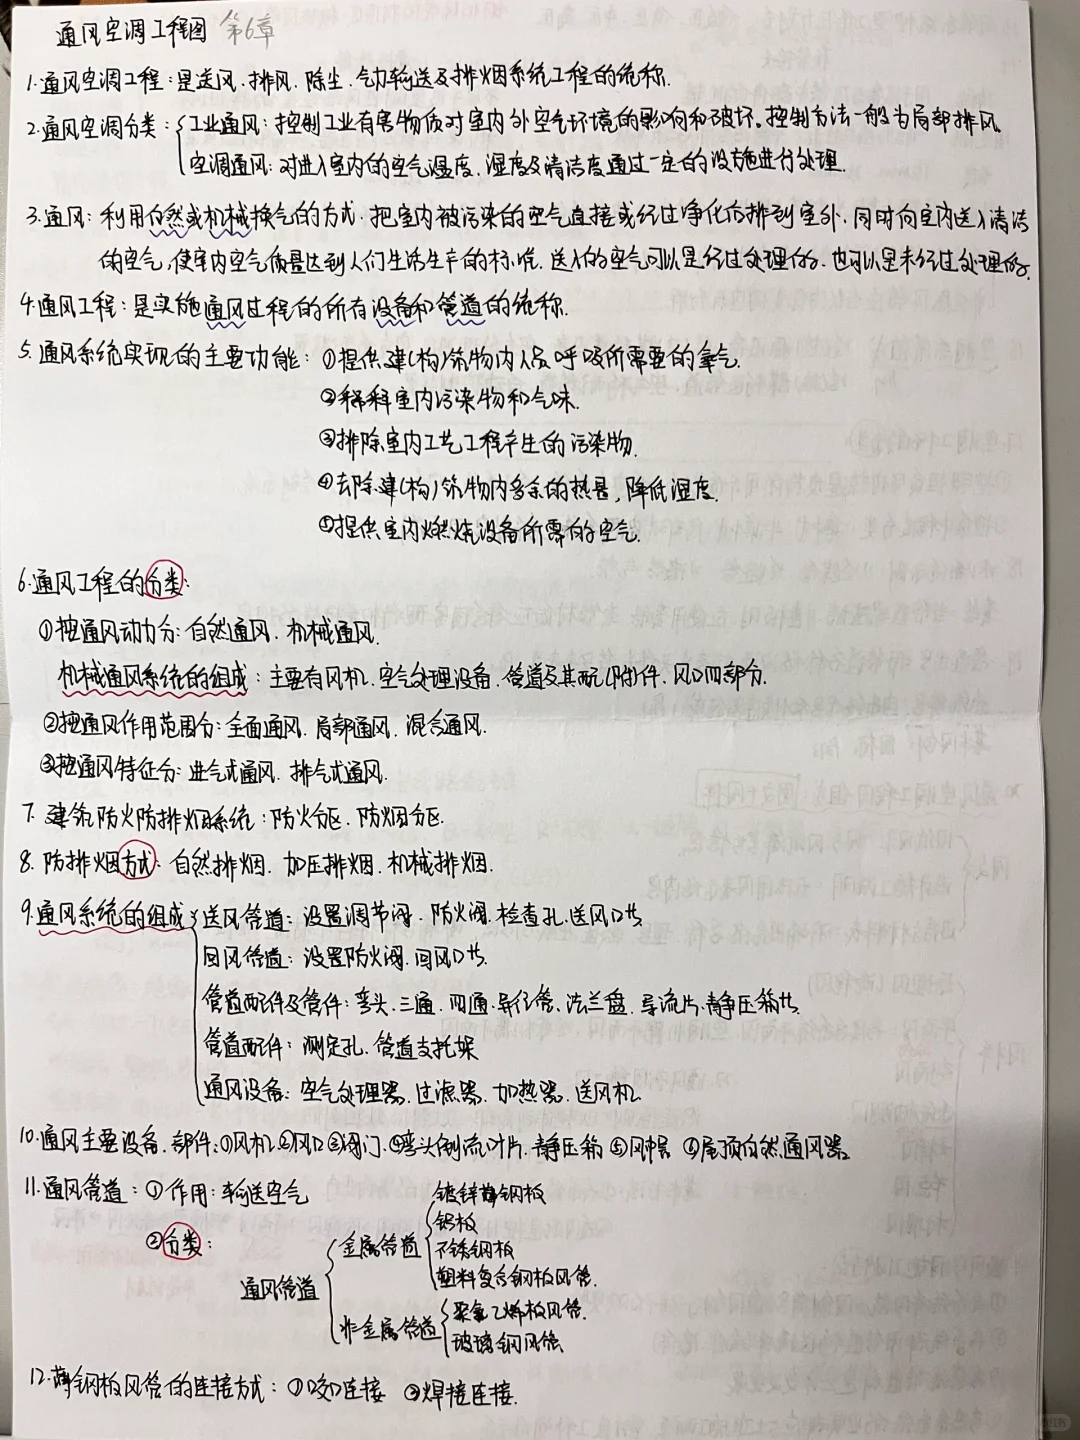 通风空调工程图 第6章
1.通风空调工程:是送风、排风、除尘、气力输送及排烟系统工程的统称.
2.通风空调分类:{工业通风:控制工业有害物质对室内外空气环境的影响和破坏。控制方法一般为局部排风.
空调通风:对进入室内的空气温度、湿度及清洁度通过一定的设施进行处理.
3.通风:利用自然或机械换气的方式.把室内被污染的空气直接或经过净化后排到室外.同时向室内送入清洁
的空气,使室内空气质量达到人们生活生产的标准.送入的空气可以是经过处理的.也可以是未经过处理的.
4.通风工程:是实施通风过程的所有设备和管道的统称.
5.通风系统实现的主要功能:①提供建(构)筑物内人员呼吸所需要的氧气.
②稀释室内污染物和气味.
③排除室内工艺工程产生的污染物.
④去除建(构)筑物内多余的热量,降低湿度.
⑤提供室内燃烧设备所需的空气.
6.通风工程的分类:
①按通风动力分:自然通风、机械通风.
机械通风系统的组成:主要有风机、空气处理设备、管道及其配(附)件、风口四部分.
②按通风作用范围分:全面通风、局部通风、混合通风.
③按通风特征分:进气式通风、排气式通风.
7.建筑防火防排烟系统:防火分区、防烟分区.
8.防排烟方式:自然排烟、加压排烟、机械排烟.
9.通风系统的组成{送风管道:设置调节阀、防火阀、检查孔、送风口 etc.
回风管道:设置防火阀.回风口 etc.
管道配件及管件:弯头、三通、四通、异径管、法兰盘、导流片、静压箱 etc.
管道配件:测定孔、管道支托架
通风设备:空气处理器、过滤器、加热器、送风机.
10.通风主要设备、部件:①风机②风口③阀门④弯头倒流叶片、静压箱⑤风帽⑥屋顶自然通风器
11.通风管道:①作用:输送空气
②分类:
通风管道
金属管道
镀锌薄钢板
铝板
不锈钢板
塑料复合钢板风管.
非金属管道
聚氯乙烯板风管.
玻璃钢风管
12.薄钢板风管的连接方式:①咬口连接 ②焊接连接.